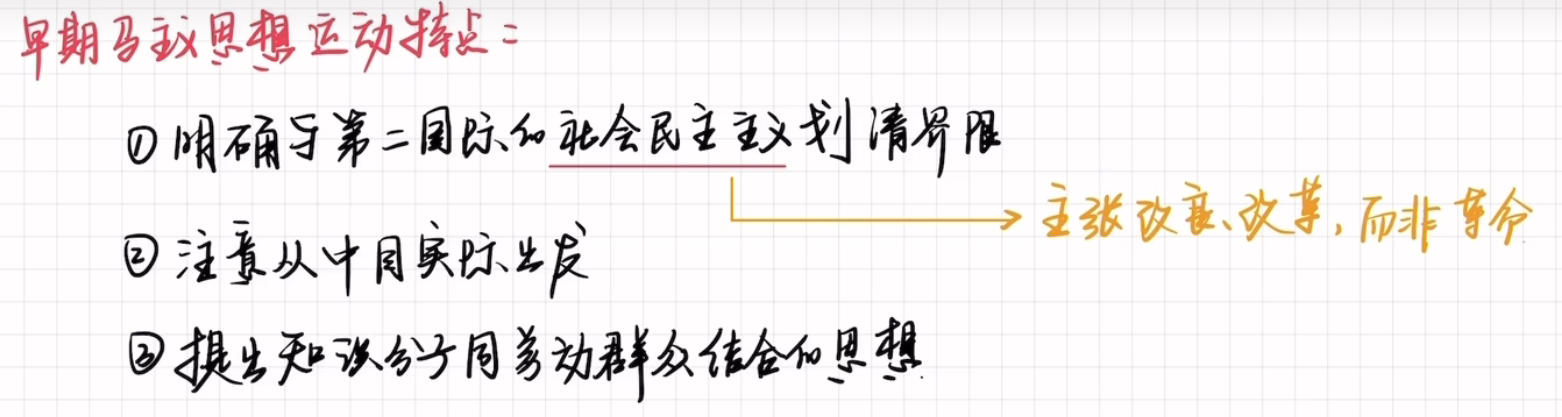 早期马主义思想运动特点：
①明确与第二国际的社会民主主义划清界限
主张改良、改革，而非革命
②注意从中国实际出发
③提出知识分子同劳动群众结合的思想